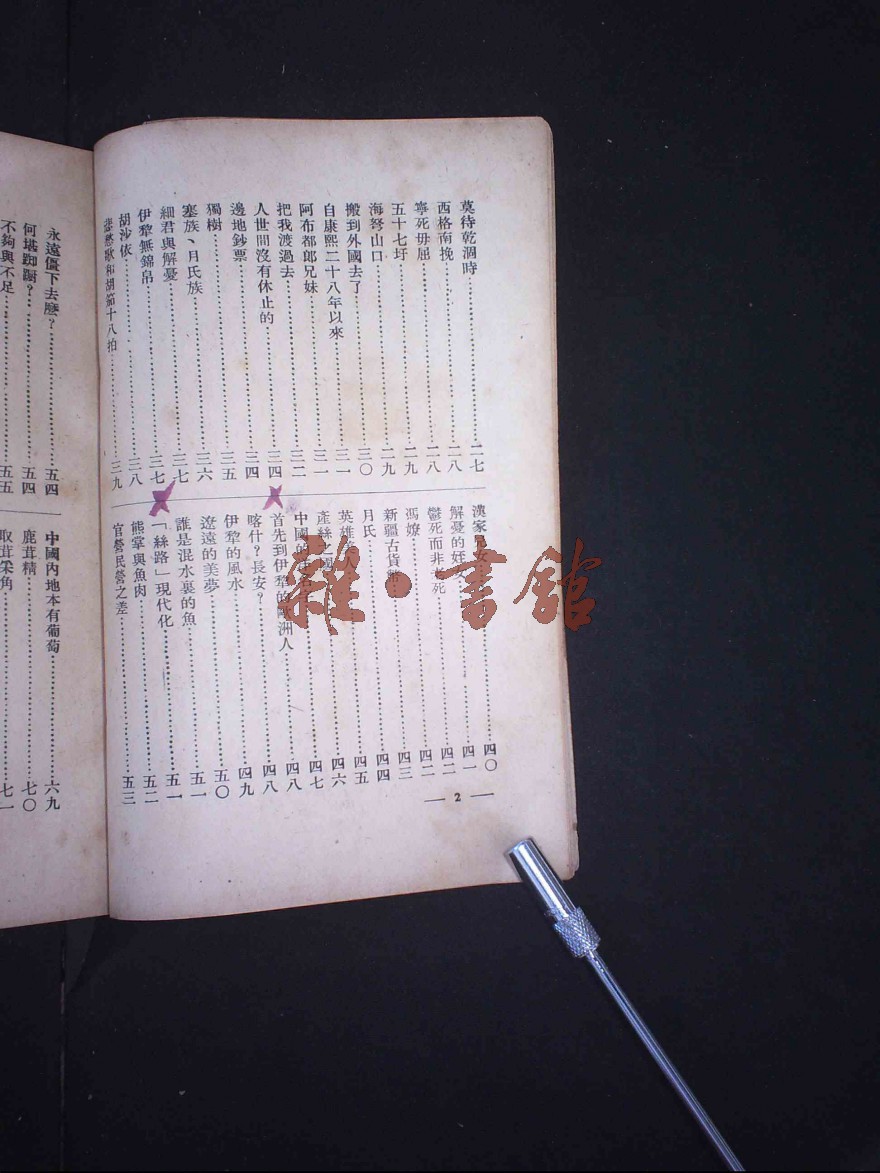 莫待乾涸時……二七
西格南挽……二八
寧死毋屈……二八
五十七圩……二九
海弩山口……二九
搬到外國去了……三〇
自康熙二十八年以來……三一
阿布都郎兄妹……三一
把我渡過去……三二
人世間沒有休止的……三四
邊地鈔票……三四
獨樹……三五
塞族、月氏族……三六
細君與解憂……三七
伊犂無錦帛……三七
胡沙依……三八
歌和胡笳十八拍……三九
漢家……四〇
解憂的姪女……四一
鬱死而非 死……四二
馮嫽……四二
新疆古貨幣……四三
月氏……四四
英雄……四五
產絲 國……四六
中國的……四七
首先到伊犂的歐洲人……四八
喀什?長安?……四八
伊犂的風水……四九
遼遠的美夢……五〇
誰是混水裏的魚……五一
「絲路」現代化……五一
熊掌與魚肉……五二
官營民營之差……五三
— 2 —
永遠僵下去麽?……五四
何堪踟蹰?……五四
不夠與不足……五五
中國內地本有葡萄……六九
鹿茸精……七〇
取茸柒角……七一
雜·書館